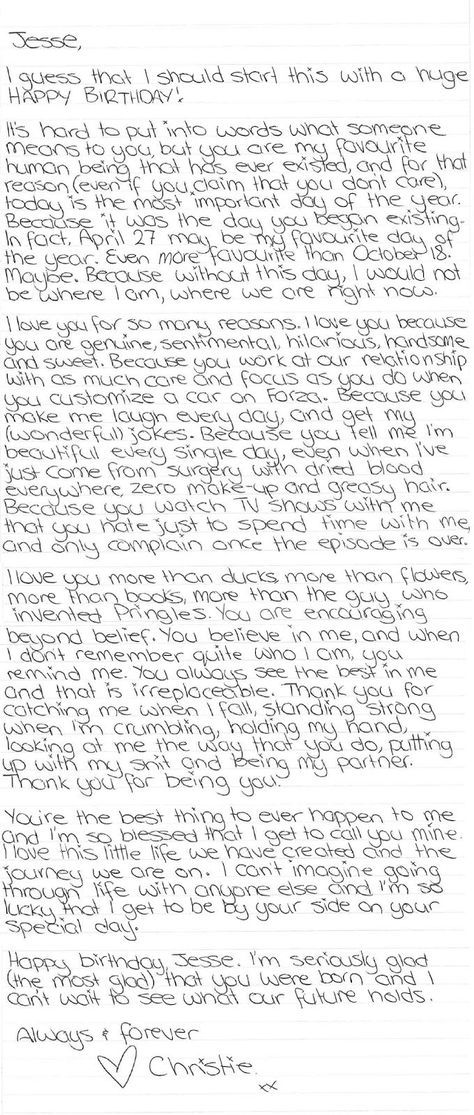 Jesse,
I guess that I should start this with a huge
HAPPY BIRTHDAY!
It's hard to put into words what someone
means to you, but you are my favourite
human being that has ever existed, and for that
reason (even if you claim that you don't care),
today is the most important day of the year.
Because it was the day you began existing.
In fact, April 27 may be my favourite day of
the year. Even more favourite than October 18.
Maybe. Because without this day, I would not
be where I am, where we are right now.
I love you for so many reasons. I love you because
you are genuine, sentimental, hilarious, handsome
and sweet. Because you work at our relationship
with as much care and focus as you do when
you customize a car on Forza. Because you
make me laugh every day, and get my
(wonderful) jokes. Because you tell me I'm
beautiful every single day, even when I've
just come from surgery with dried blood
everywhere, zero make-up and greasy hair.
Because you watch TV shows with me
that you hate just to spend time with me,
and only complain once the episode is over.
I love you more than ducks, more than flowers,
more than books, more than the guy who
invented Pringles. You are encouraging
beyond belief. You believe in me, and when
I don't remember quite who I am, you
remind me. You always see the best in me
and that is irreplaceable. Thank you for
catching me when I fall, standing strong
when I'm crumbling, holding my hand,
looking at me the way that you do, putting
up with my shit and being my partner.
Thank you for being you.
You're the best thing to ever happen to me
and I'm so blessed that I get to call you mine.
I love this little life we have created and the
journey we are on. I can't imagine going
through life with anyone else and I'm so
lucky that I get to be by your side on your
special day.
Happy birthday, Jesse. I'm seriously glad
(the most glad) that you were born and I
can't wait to see what our future holds.
Always & forever
♡ Christie.
xx